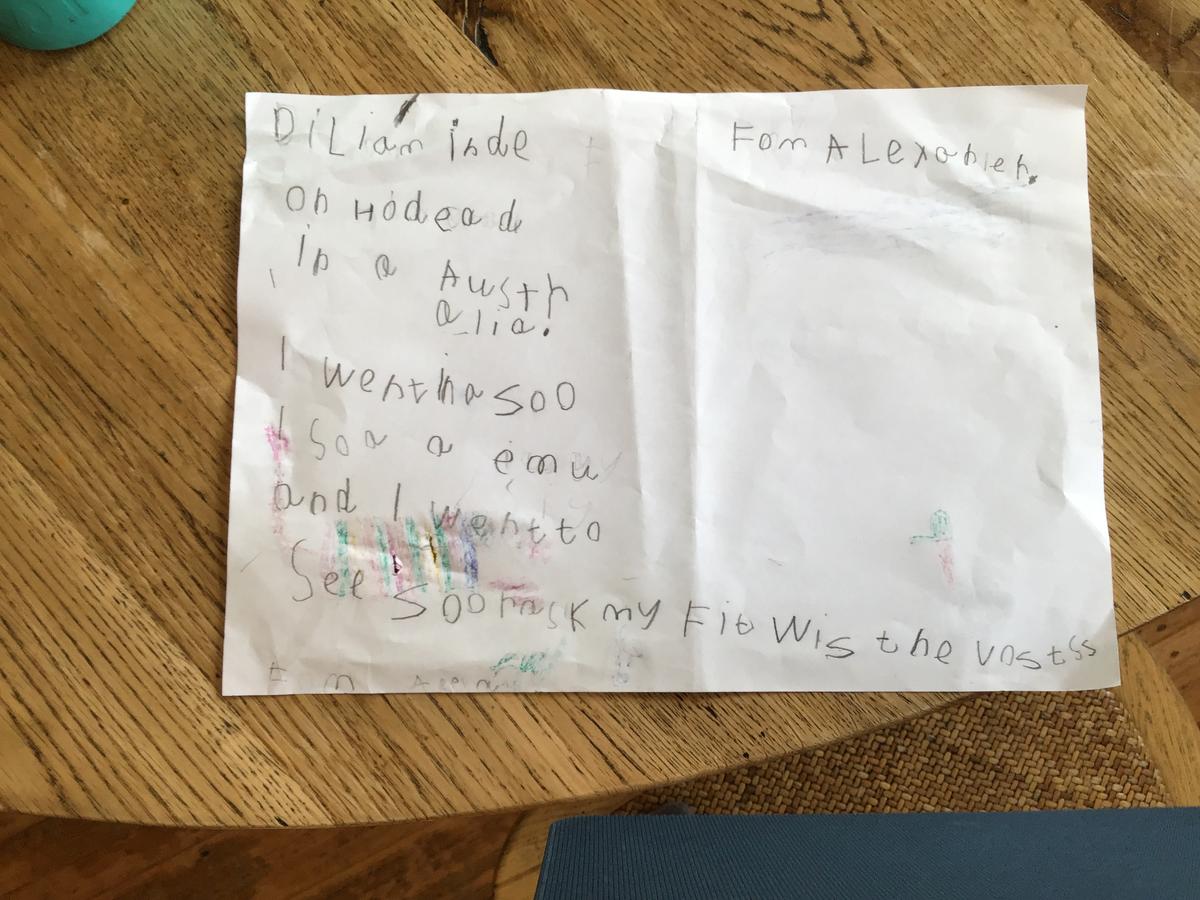 DiLiam inde
on Hodead
in a Austr
alia.
I wentha SOO
I Soa a emu
and I went to
See SOO hask my Fit Wis the vostss
Fom ALexanieh.